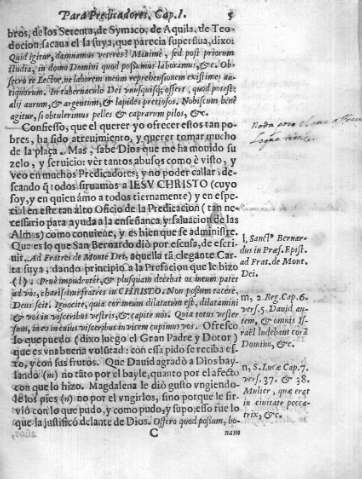 Para Predicadores, Cap. I. 5
bros, de los Setenta, de Symaco, de Aquila, de Teo-
docion sacaua el la suya, que parecia superflua, dixo:
Quid igitur, damnamus veteres? Minimè, sed post priorum
studia, in domo Domini quod possumus laboramus, &c. Ob-
secro te Lector, ne laborem meum reprehensionem existimes an-
tiquorum. In tabernaculo Dei vnusquisq; offert, quod potest;
alij aurum, & argentum, & lapides pretiosos. Nobiscum benè
agitur, si obtulerimus pelles & caprarum pilos, &c.
Confiesso, que el querer yo ofrecer estos tan po-
bres, ha sido atreuimiento, y querer tomar mucho
de la plaça. Mas, sabe Dios que me ha mouido su
zelo, y seruicio: ver tantos abusos como è visto, y
veo en muchos Predicadores; y no poder callar; de-
scando q̃ todos siruamos a IESV CHRISTO (cuyo
soy, y en quien âmo a todos tiernamente) y en espe-
cial en este tan alto Oficio de la Predicacion (tan ne-
cessario para ayuda a la enseñança, y saluacion de las
Almas) como conuiene, y es bien que se administre.
Que es lo que San Bernardo diò por escusa, de escri-
uir, Ad Fratres de Monte Dei, aquella tã elegante Car-
ta suya, dando principio a la Prefacion que le hizo
(l): Penè impudenter, & plusquam decebat os meum patet
ad vos, charissimi fratres in CHRISTO. Non possum tacere.
Deus scit. Ignoscite, quia cor meum dilatatum est, dilatamini
& vos in visceribus vestris, & capite nos. Quia totus vester
sum, in eo in cuius visceribus inuicem cupimus nos. Ofresco
lo que puedo (dixo luego el Gran Padre y Dotor)
que es vna buena volũtad: con essa pido se reciba es-
to, y con sus frutos. Que Dauid agradò a Dios bay-
lando (m) no tãto por el bayle, quanto por el afecto
con que lo hizo. Magdalena le diò gusto vngiendo-
le los pies (n) no por el vngirlos, sino porque le sir-
viò con lo que pudo, y como pudo, y supo: esso fue lo
que la justificò delante de Dios. Offero quod possum, bo-
C nam
l, Sanct⁹ Bernar-
dus in Præf. Epist.
ad Frat. de Monte
Dei.
m, 2. Reg. Cap. 6.
vers. 5. Dauid au-
tem, & omnis Is-
raël ludebant corã
Domino, &c.
n, S. Lucæ Cap. 7.
vers. 37. & 38.
Mulier, quæ erat
in ciuitate pecca-
trix, &c.